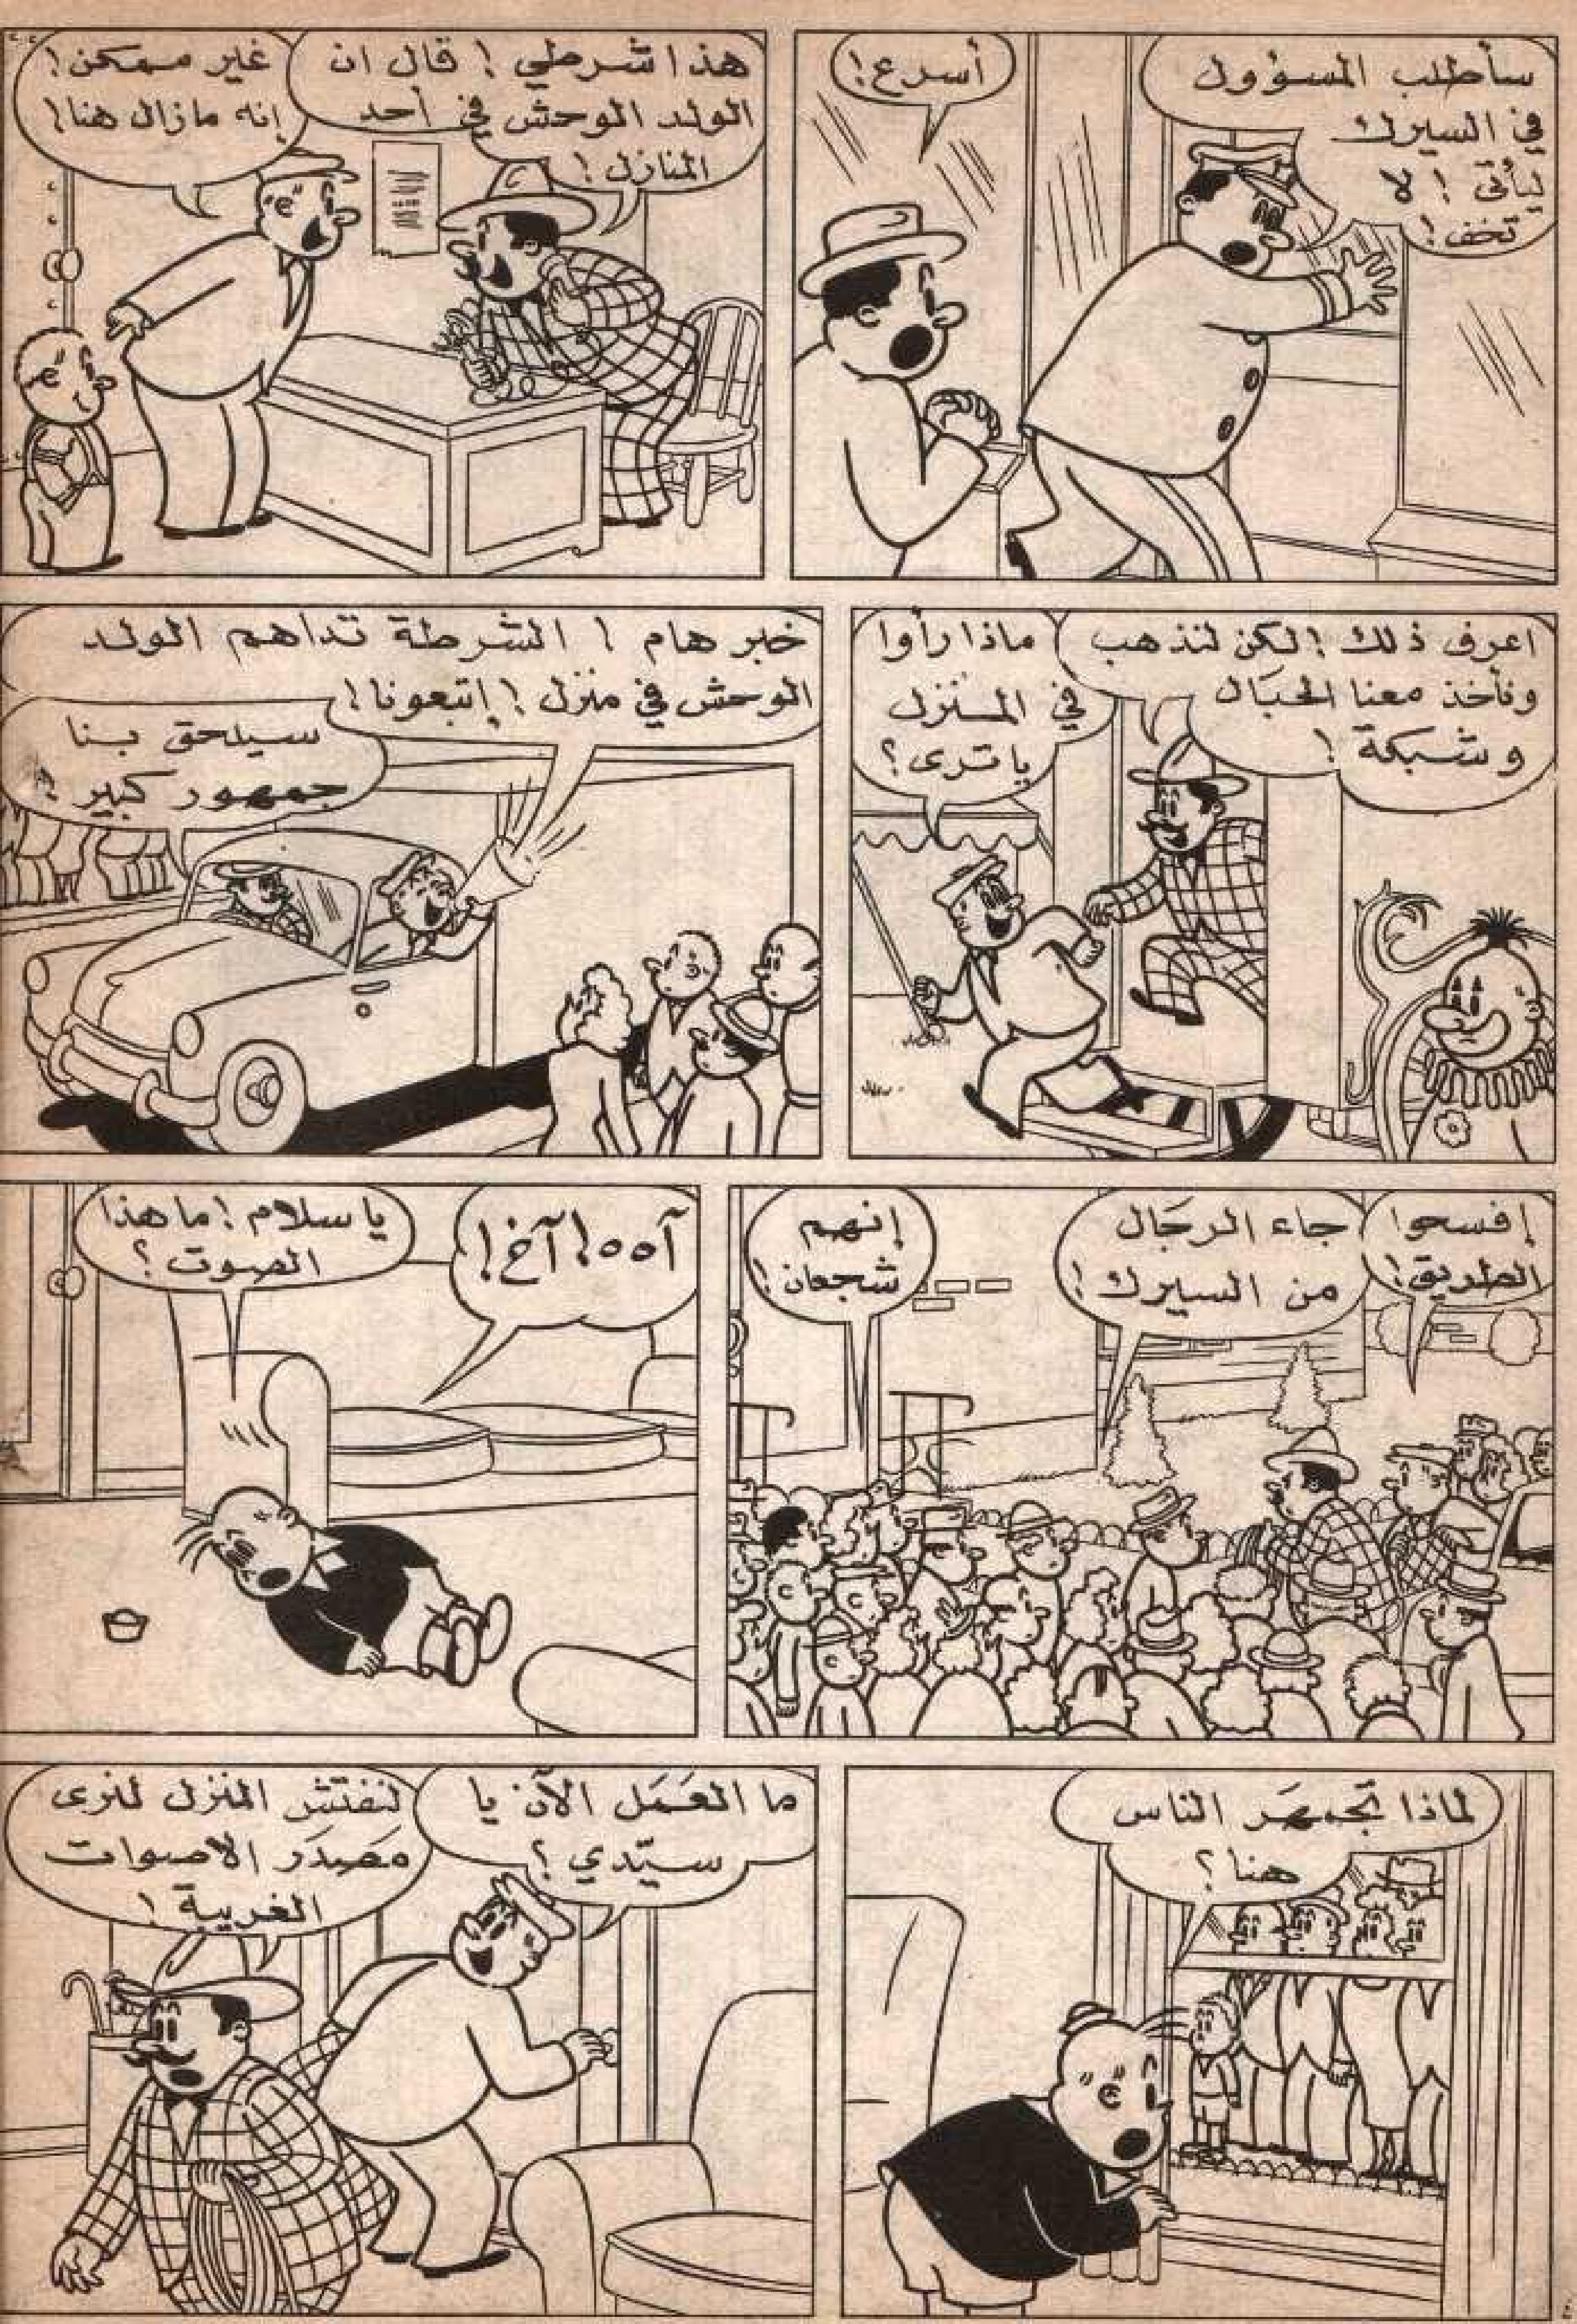 سأطلب المسؤول
في السيرك
ليأتي ! لا
تخف !
أسرع !
هذا شرطي ! قال ان
الولد الوحش في أحد
المنازل !
غير ممكن !
إنه مازال هنا !
اعرف ذلك ! لكن لنذهب
ونأخذ معنا الحبال
وشبكة !
ماذا رأوا
في المنزل
يا ترى ؟
خبر هام ! الشرطة تداهم الولد
الوحش في منزل ! إتبعونا !
سيلحق بنا
جمهور كبير !
إفسحوا
الطريق !
جاء الرجَال
من السيرك !
إنهم
شجعان !
آه ه ! آخ !
يا سلام ! ما هذا
الصوت ؟
لماذا تجمهَر الناس
هنا ؟
ما العَمَل الآن يا
سيّدي ؟
لنفتش المنزل لنرى
مَصدَر الاصوات
الغريبة !